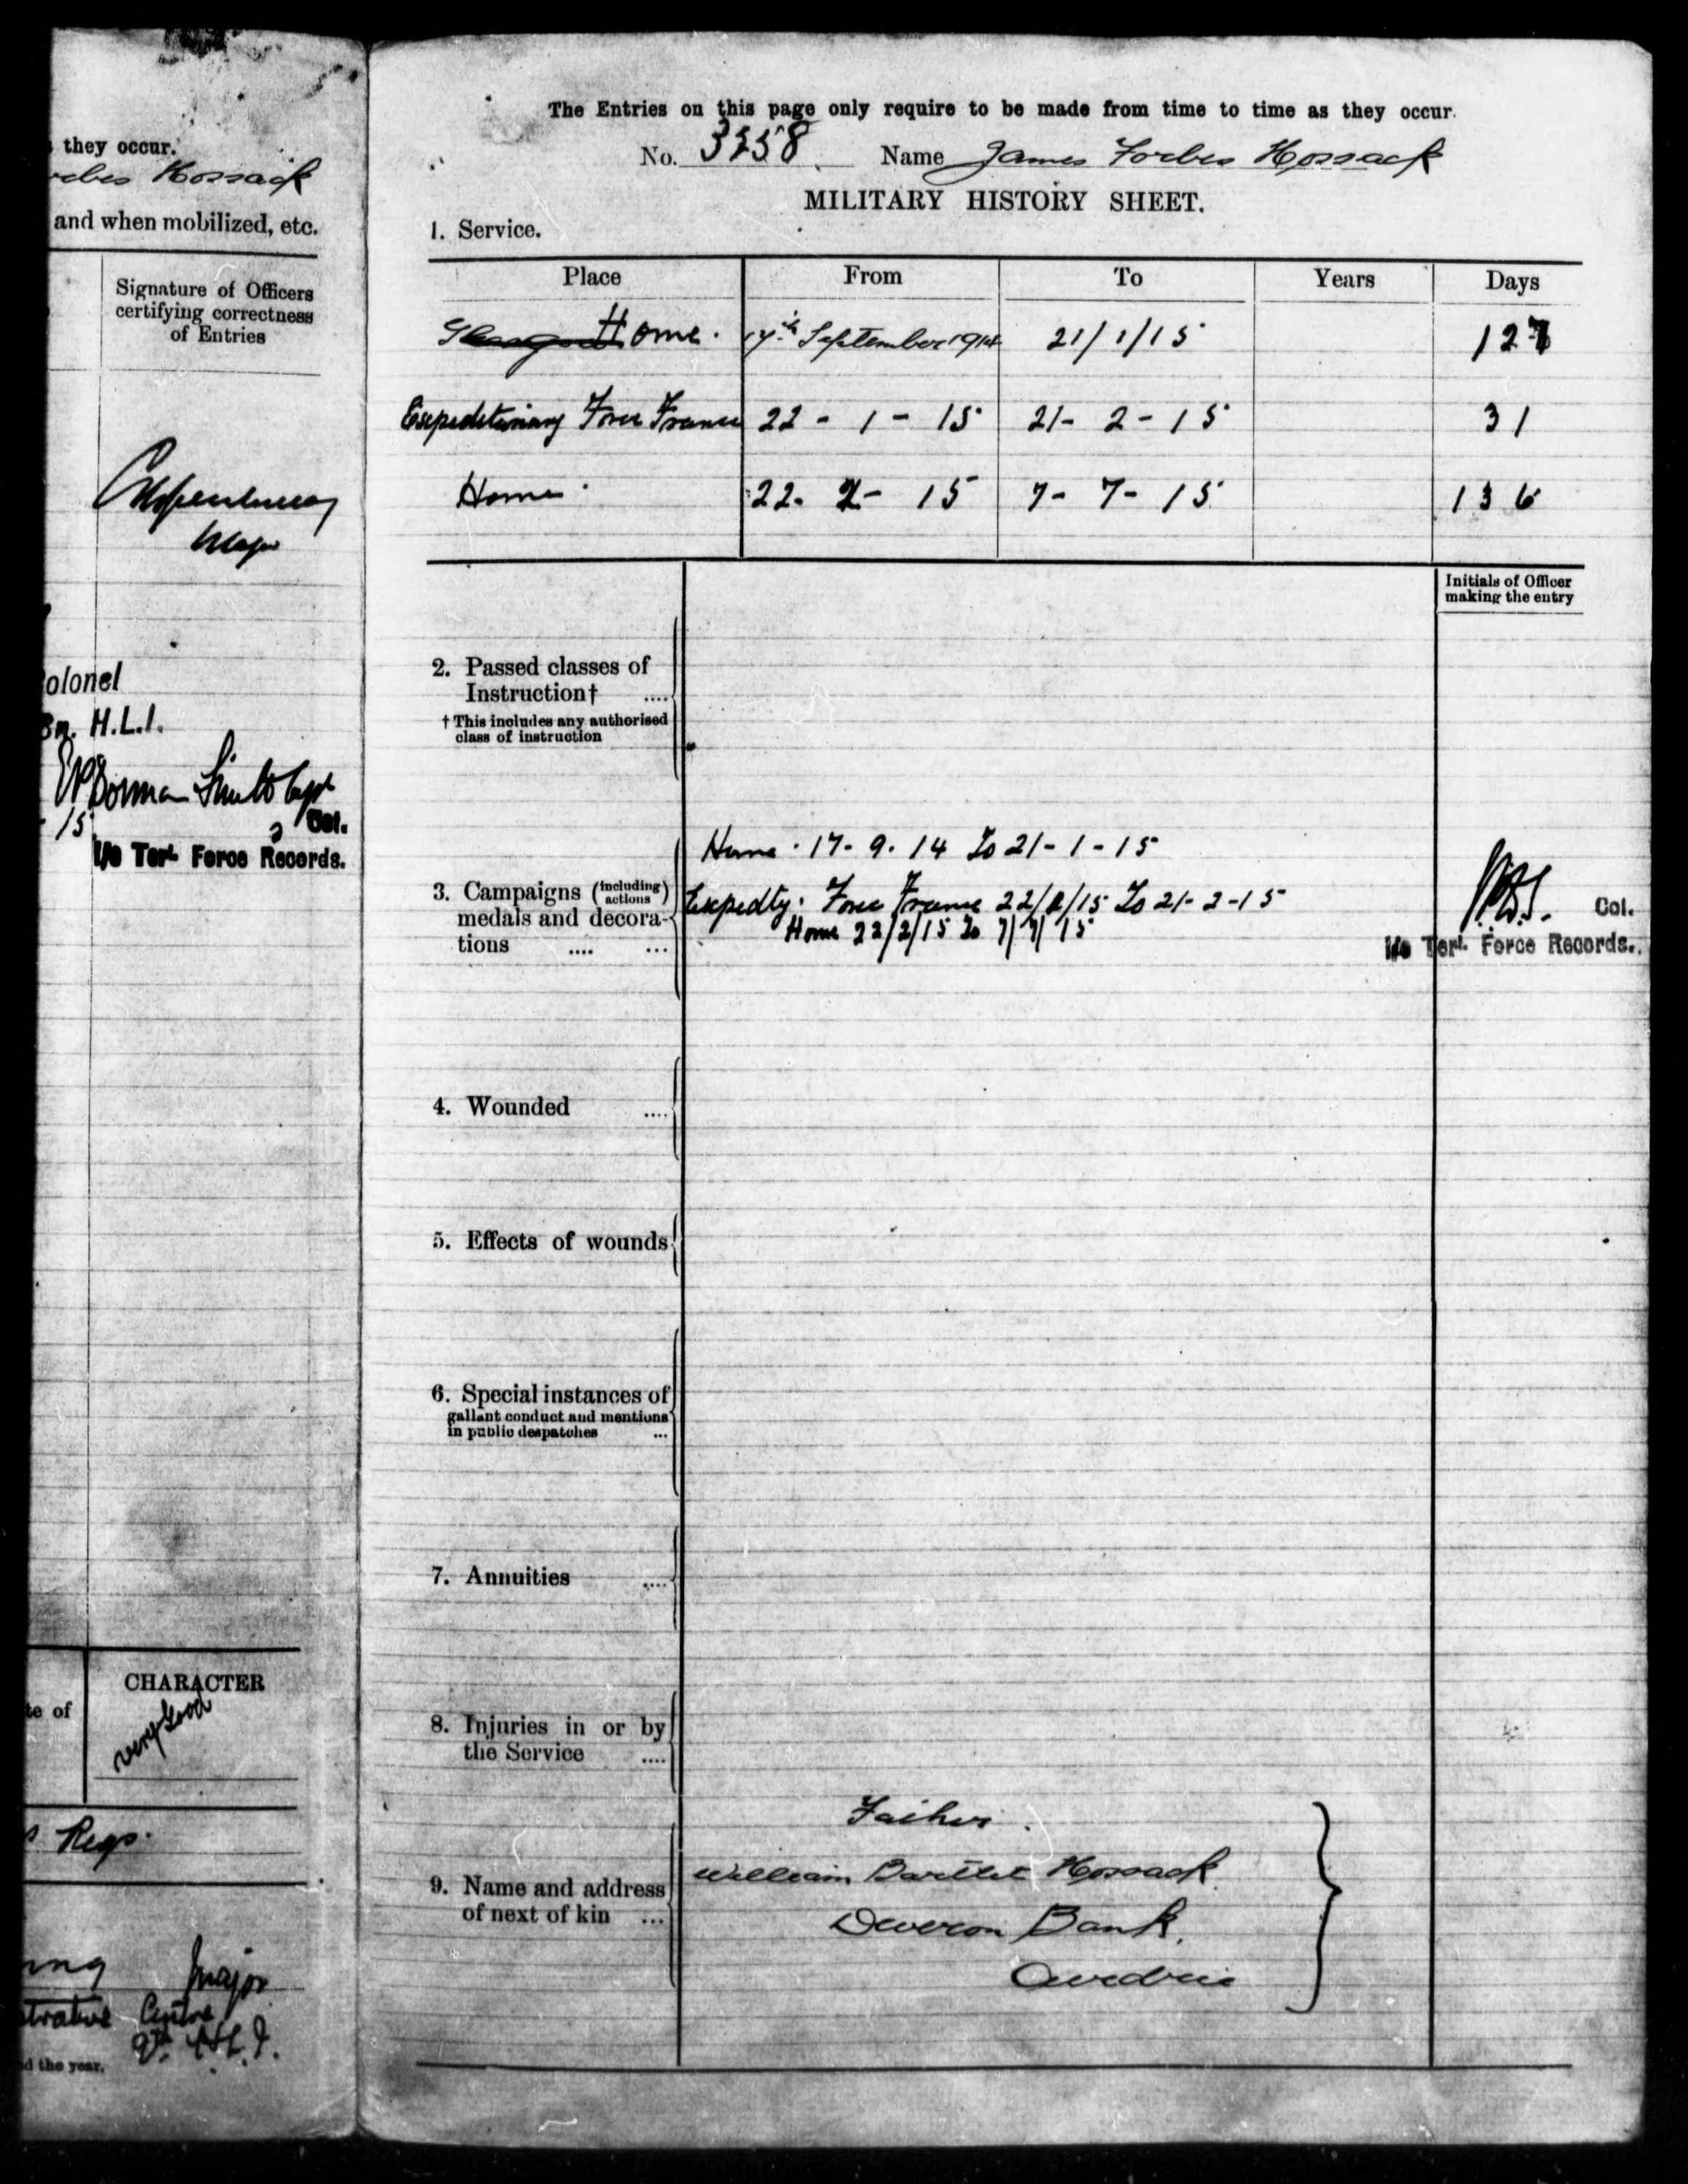 they occur.
Hossack
and when mobilized, etc.
Signature of Officers
certifying correctness
of Entries
Major
olonel
Bn. H.L.I.
Dorman Smith Capt
15
Col.
I/c Terl. Force Records.
CHARACTER
te of
very good
Regs.
Major
Centre
9th H.L.I.
d the year.
The Entries on this page only require to be made from time to time as they occur.
No. 3258 Name James Forbes Hossack
MILITARY HISTORY SHEET.
1. Service.
Place From To Years Days
Glasgow Home. 17th September 1914 21/1/15 127
Expeditionary Force France 22 - 1 - 15 21- 2 - 15 31
Home. 22. 2 - 15 7- 7- 15 136
Initials of Officer
making the entry
2. Passed classes of
Instruction† ....
† This includes any authorised
class of instruction
Home . 17. 9. 14 To 21 - 1 - 15
3. Campaigns (including actions)
medals and decora-
tions .... ...
Expedty. Force France 22/2/15 To 21-2-15
Home 22/2/15 To 7/7/15
Col.
I/c Terl. Force Records.
4. Wounded ....
5. Effects of wounds
6. Special instances of
gallant conduct and mentions
in public despatches ...
7. Annuities ....
8. Injuries in or by
the Service ....
Father.
9. Name and address
of next of kin ...
William Bartlet Hossack
Deveron Bank.